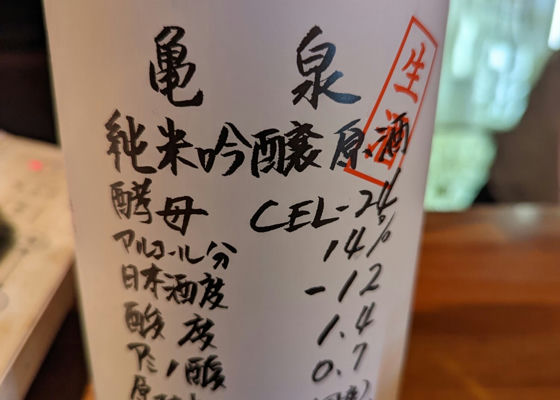 亀泉
生酒
純米吟醸原酒
酵母 CEL-24
アルコール分 14%
日本酒度 -12
酸度 1.4
アミノ酸 0.7